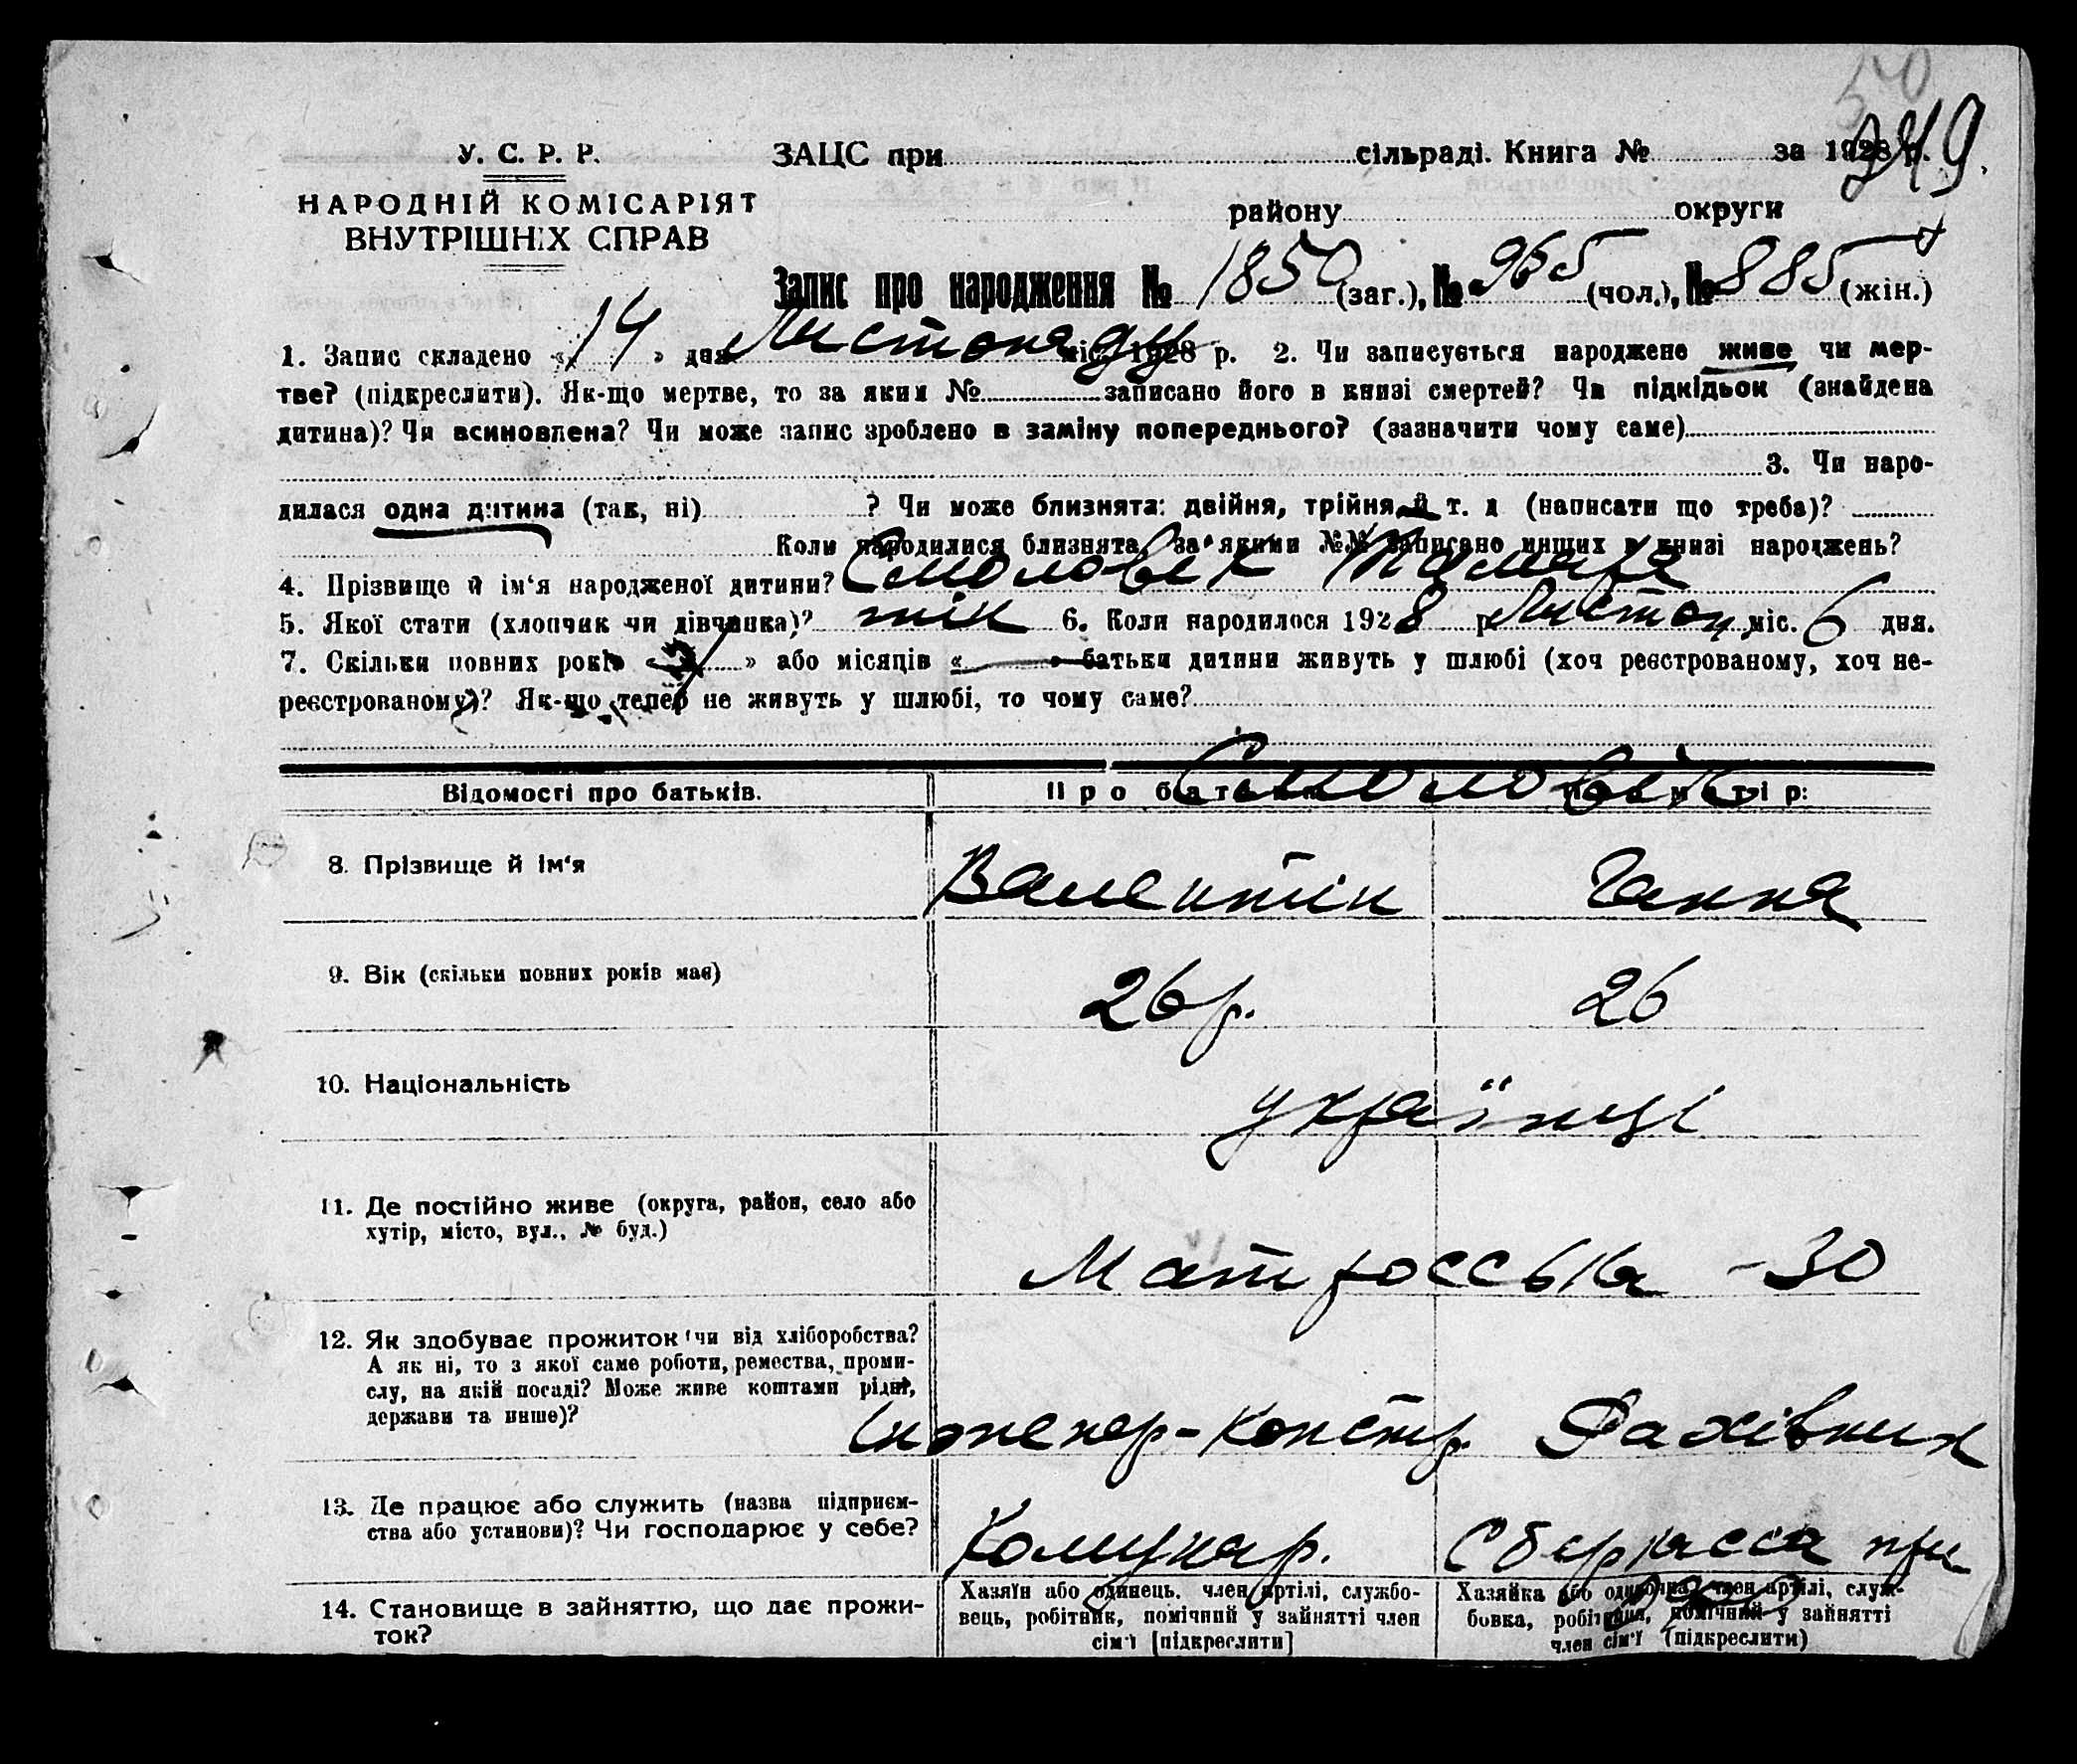 50
249.
У. С. Р. Р. ЗАЦС при сільраді. Книга № за 1928 р.
НАРОДНІЙ КОМІСАРІЯТ
ВНУТРІШНІХ СПРАВ
району округи
Запис про народження № 1850 (заг.), № 965 (чол.), № 885 (жін.)
1. Запис складено « 14 » дня Листопаду міс. 1928 р. 2. Чи записується народжене живе чи мер-
тве? (підкреслити). Як-що мертве, то за яким № записано його в книзі смертей? Чи підкідьок (знайдена
дитина)? Чи всиновлена? Чи може запис зроблено в заміну попереднього? (зазначити чому саме)
3. Чи наро-
дилася одна дитина (так, ні) ? Чи може близнята: двійня, трійня й т. д (написати що треба)?
Коли народилися близнята, за якими №№ записано инших в книзі народжень?
4. Прізвище й ім‘я народженої дитини? Смоловик Тамара
5. Якої стати (хлопчик чи дівчинка)? жін 6. Коли народилося 1928 р Листоп міс. 6 дня.
7. Скільки повних років « » або місяців « » батьки дитини живуть у шлюбі (хоч реєстрованому, хоч не-
реєстрованому)? Як-що тепер не живуть у шлюбі, то чому саме?
Смоловік
Відомості про батьків. Про батька Про матір:
8. Прізвище й ім‘я Валентін Ганна
9. Вік (скільки повних років має) 26 р. 26
10. Національність українці
11. Де постійно живе (округа, район, село або
хутір, місто, вул., № буд.)
Матросська - 30
12. Як здобуває прожиток чи від хліборобства?
А як ні, то з якої саме роботи, ремества, проми-
слу, на якій посаді? Може живе коштами рідні,
держави та инше)?
Інженер-констр. Фахівник
13. Де працює або служить (назва підприєм-
ства або установи)? Чи господарює у себе?
Комунар. Сберкасса при
14. Становище в зайняттю, що дає прожи-
ток?
Хазяїн або одинець, член артілі, службо-
вець, робітник, помічний у зайнятті член
сім‘ї [підкреслити]
Хазяйка або одиночка, член артілі, служ-
бовка, робітниця, помічний у зайнятті
член сім‘ї (підкреслити)